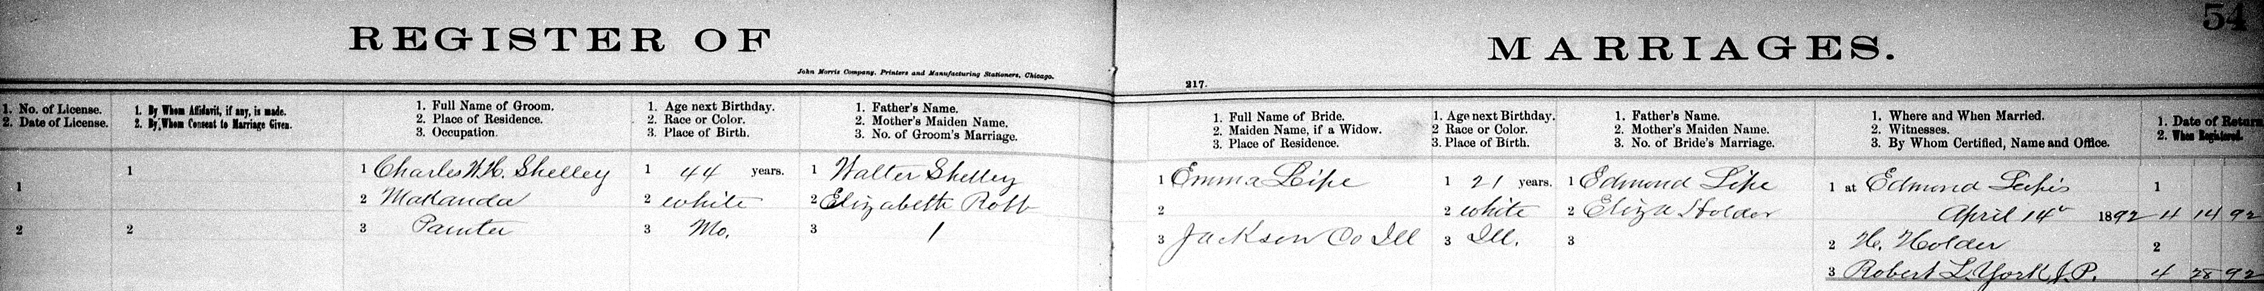 54
REGISTER OF MARRIAGES.
John Morris Company, Printers and Manufacturing Stationers, Chicago.
217.
1. No. of License.
2. Date of License.
1. By Whom Affidavit, if any, is made.
2. By Whom Consent to Marriage Given.
1. Full Name of Groom.
2. Place of Residence.
3. Occupation.
1. Age next Birthday.
2. Race or Color.
3. Place of Birth.
1. Father's Name.
2. Mother's Maiden Name.
3. No. of Groom's Marriage.
1. Full Name of Bride.
2. Maiden Name, if a Widow.
3. Place of Residence.
1. Age next Birthday.
2 Race or Color.
3. Place of Birth.
1. Father's Name.
2. Mother's Maiden Name.
3. No. of Bride's Marriage.
1. Where and When Married.
2. Witnesses.
3. By Whom Certified, Name and Office.
1. Date of Return
2. When Registered.
1
2
1
2
1 Charles W. H. Shelley
2 Makanda
3 Painter
1 44 years.
2 white
3 Mo.
1 Walter Shelley
2 Elizabeth Robb
3 1
1 Emma Lipe
2
3 Jackson Co Ill
1 21 years.
2 white
3 Ill.
1 Edmond Lipe
2 Eliza Holder
3
1 at Edmond Lipe's
April 14 1892
2 H. Holder
3 Robert L. York J.P.
1
4 14 92
2
4 28 92